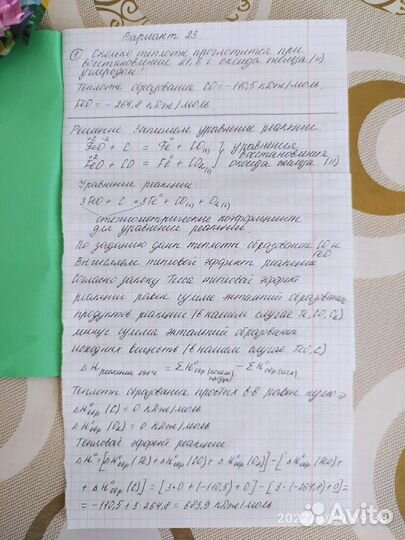 Вариант 23
① Сколько теплоты поглотится при
восстановлении 21,6 г. оксида железа (II)
углеродом.
Теплоты образования CO = -110,5 кДж/моль,
FeO = -264,8 кДж/моль.
Решение. Запишем уравнение реакции
FeO + C = Fe⁰ + CO(г) } уравнения
восстановления
FeO + CO = Fe⁰ + CO₂(г) оксида железа (II)
Уравнение реакции:
3FeO + C = 3Fe⁰ + CO(г) + O₂(г)
стехиометрические коэффициенты
для уравнения реакции.
По заданию даны теплоты образования CO и
FeO
Вычисляем тепловой эффект реакции
Согласно закону Гесса тепловой эффект
реакции равен сумме энтальпий образования
продуктов реакции (в нашем случае Fe, CO, O₂)
минус сумма энтальпий образования
исходных веществ (в нашем случае FeO, C)
ΔH реакции = ΣH⁰обр - ΣH⁰обр
Теплоты образования простых в-в равен нулю =>
ΔH⁰обр (C) = 0 кДж/моль
ΔH⁰обр (O₂) = 0 кДж/моль
Тепловой эффект реакции:
ΔH⁰ = [ΔH⁰обр (Fe) + ΔH⁰обр (CO) + ΔH⁰обр (O₂)] - [ΔH⁰обр (FeO) +
+ ΔH⁰обр (C)] = [3•0 + (-110,5) + 0] - [3•(-264,8) + 0] =
= -110,5 + 3•264,8 = 683,9 кДж/моль
Avito